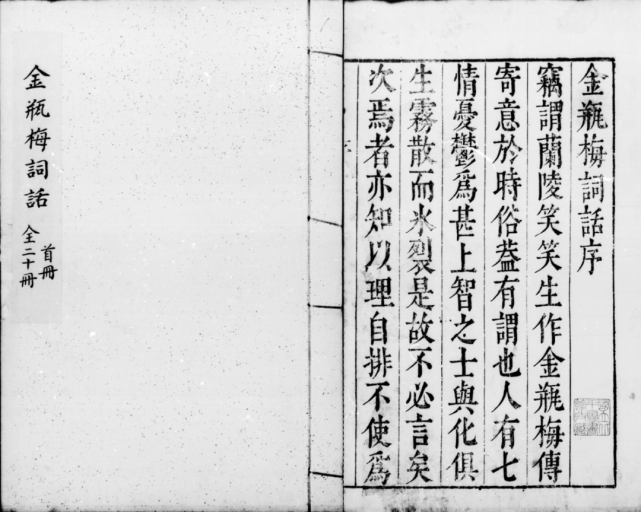 金瓶梅詞話序
竊謂蘭陵笑笑生作金瓶梅傳
寄意於時俗葢有謂也人有七
情憂鬱爲甚上智之士與化俱
生霧散而氷裂是故不必言矣
次焉者亦知以理自排不使爲
金瓶梅詞話
首冊
全二十冊